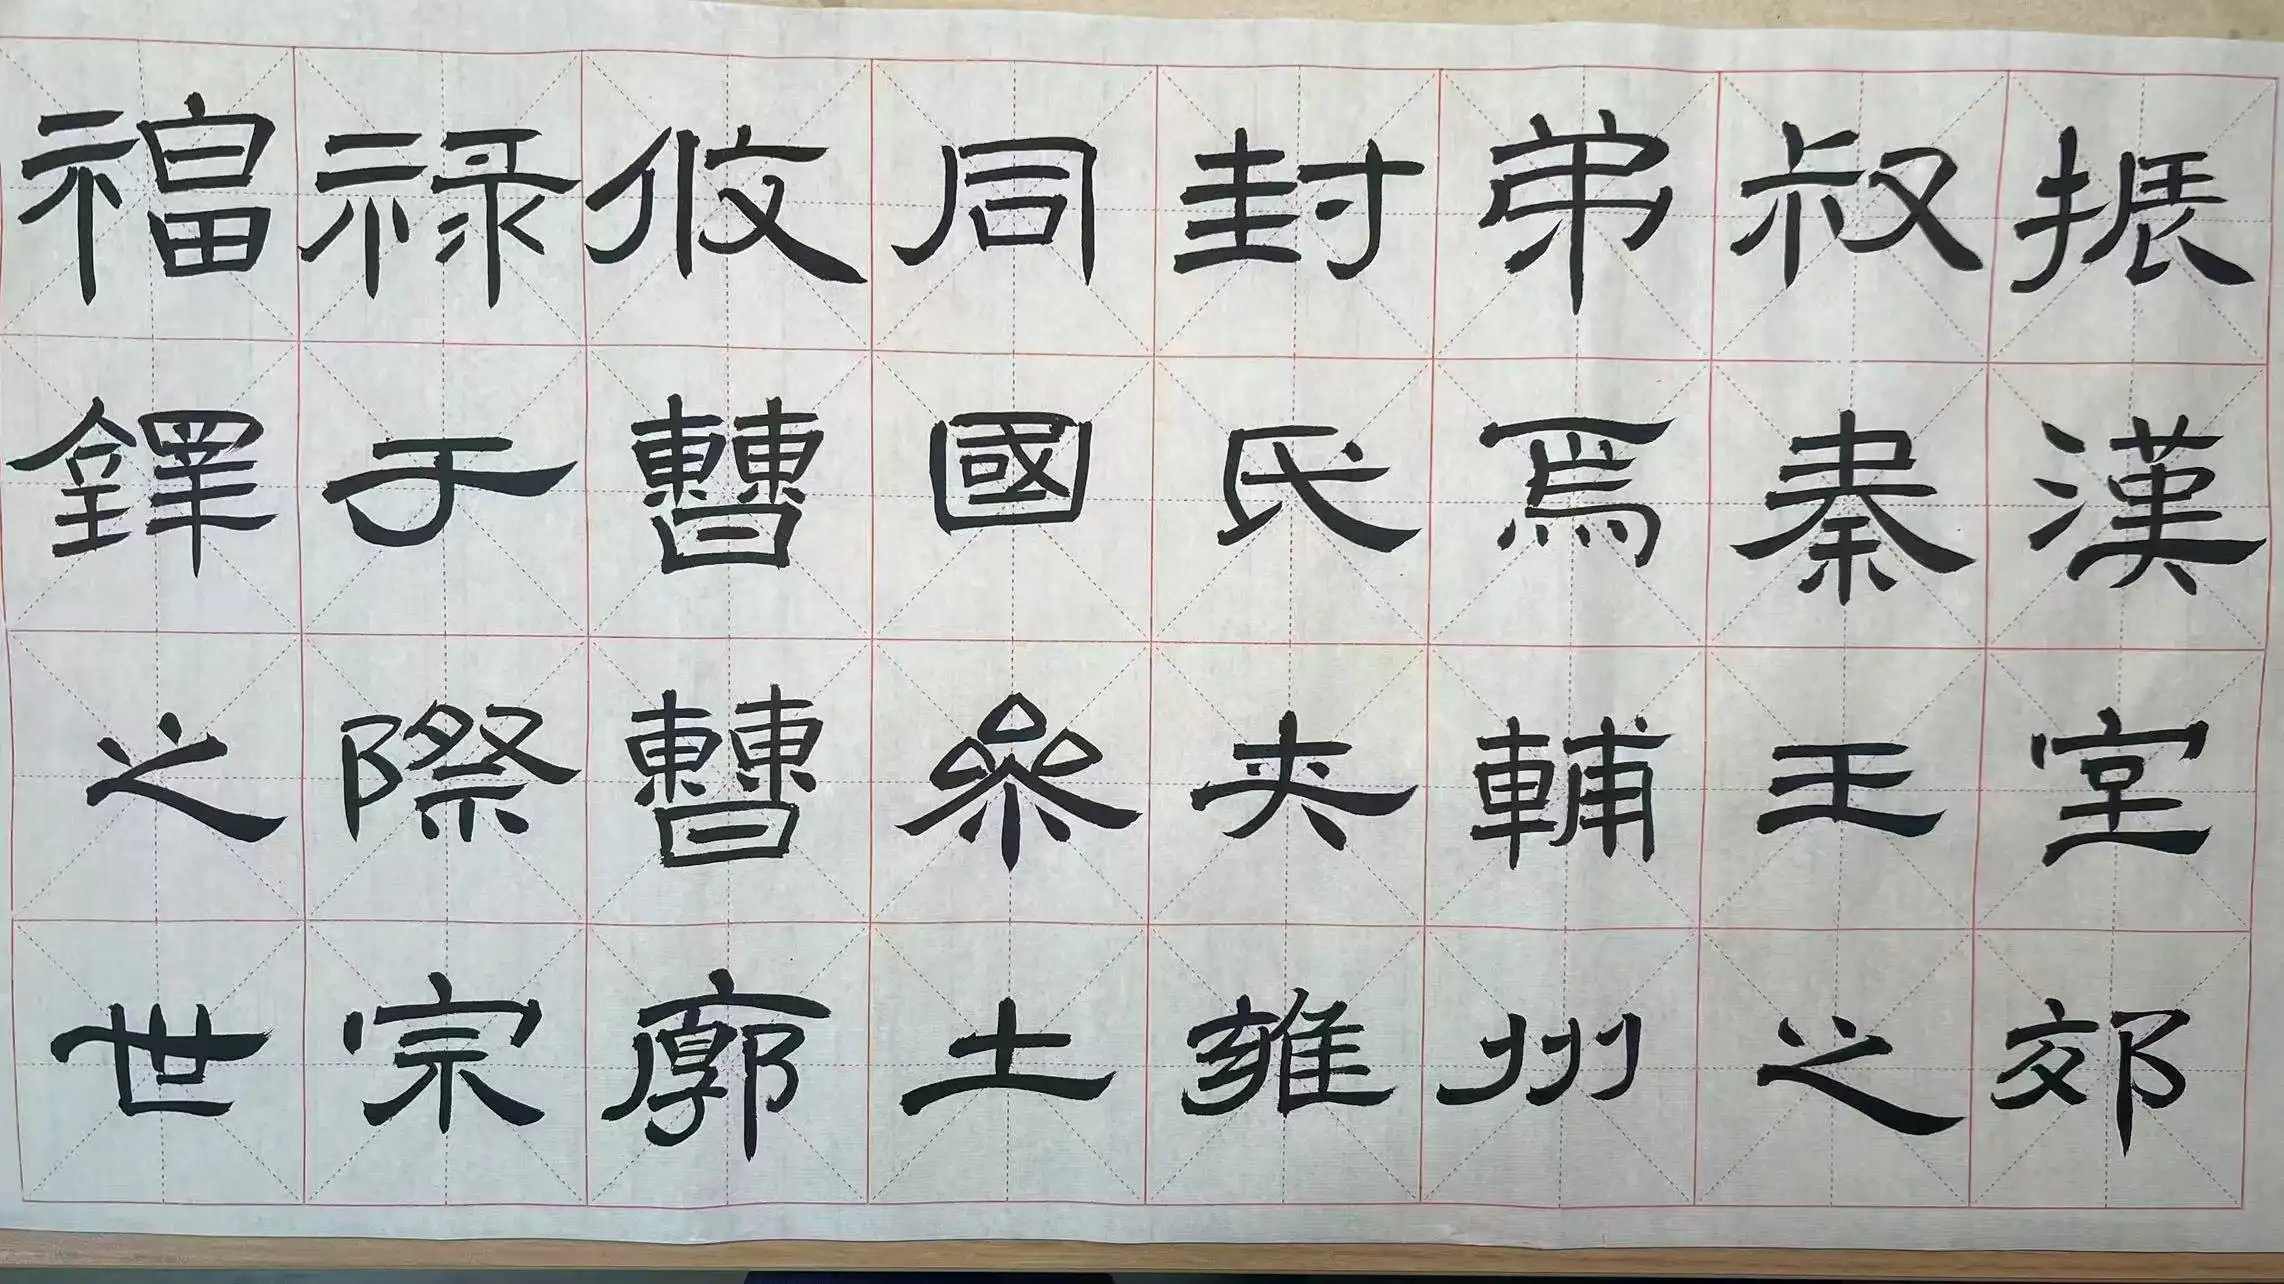 福禄攸同封弟叔振
鐸于曹國氏焉秦漢
之際曹參夾輔王室
世宗廓土雍州之郊